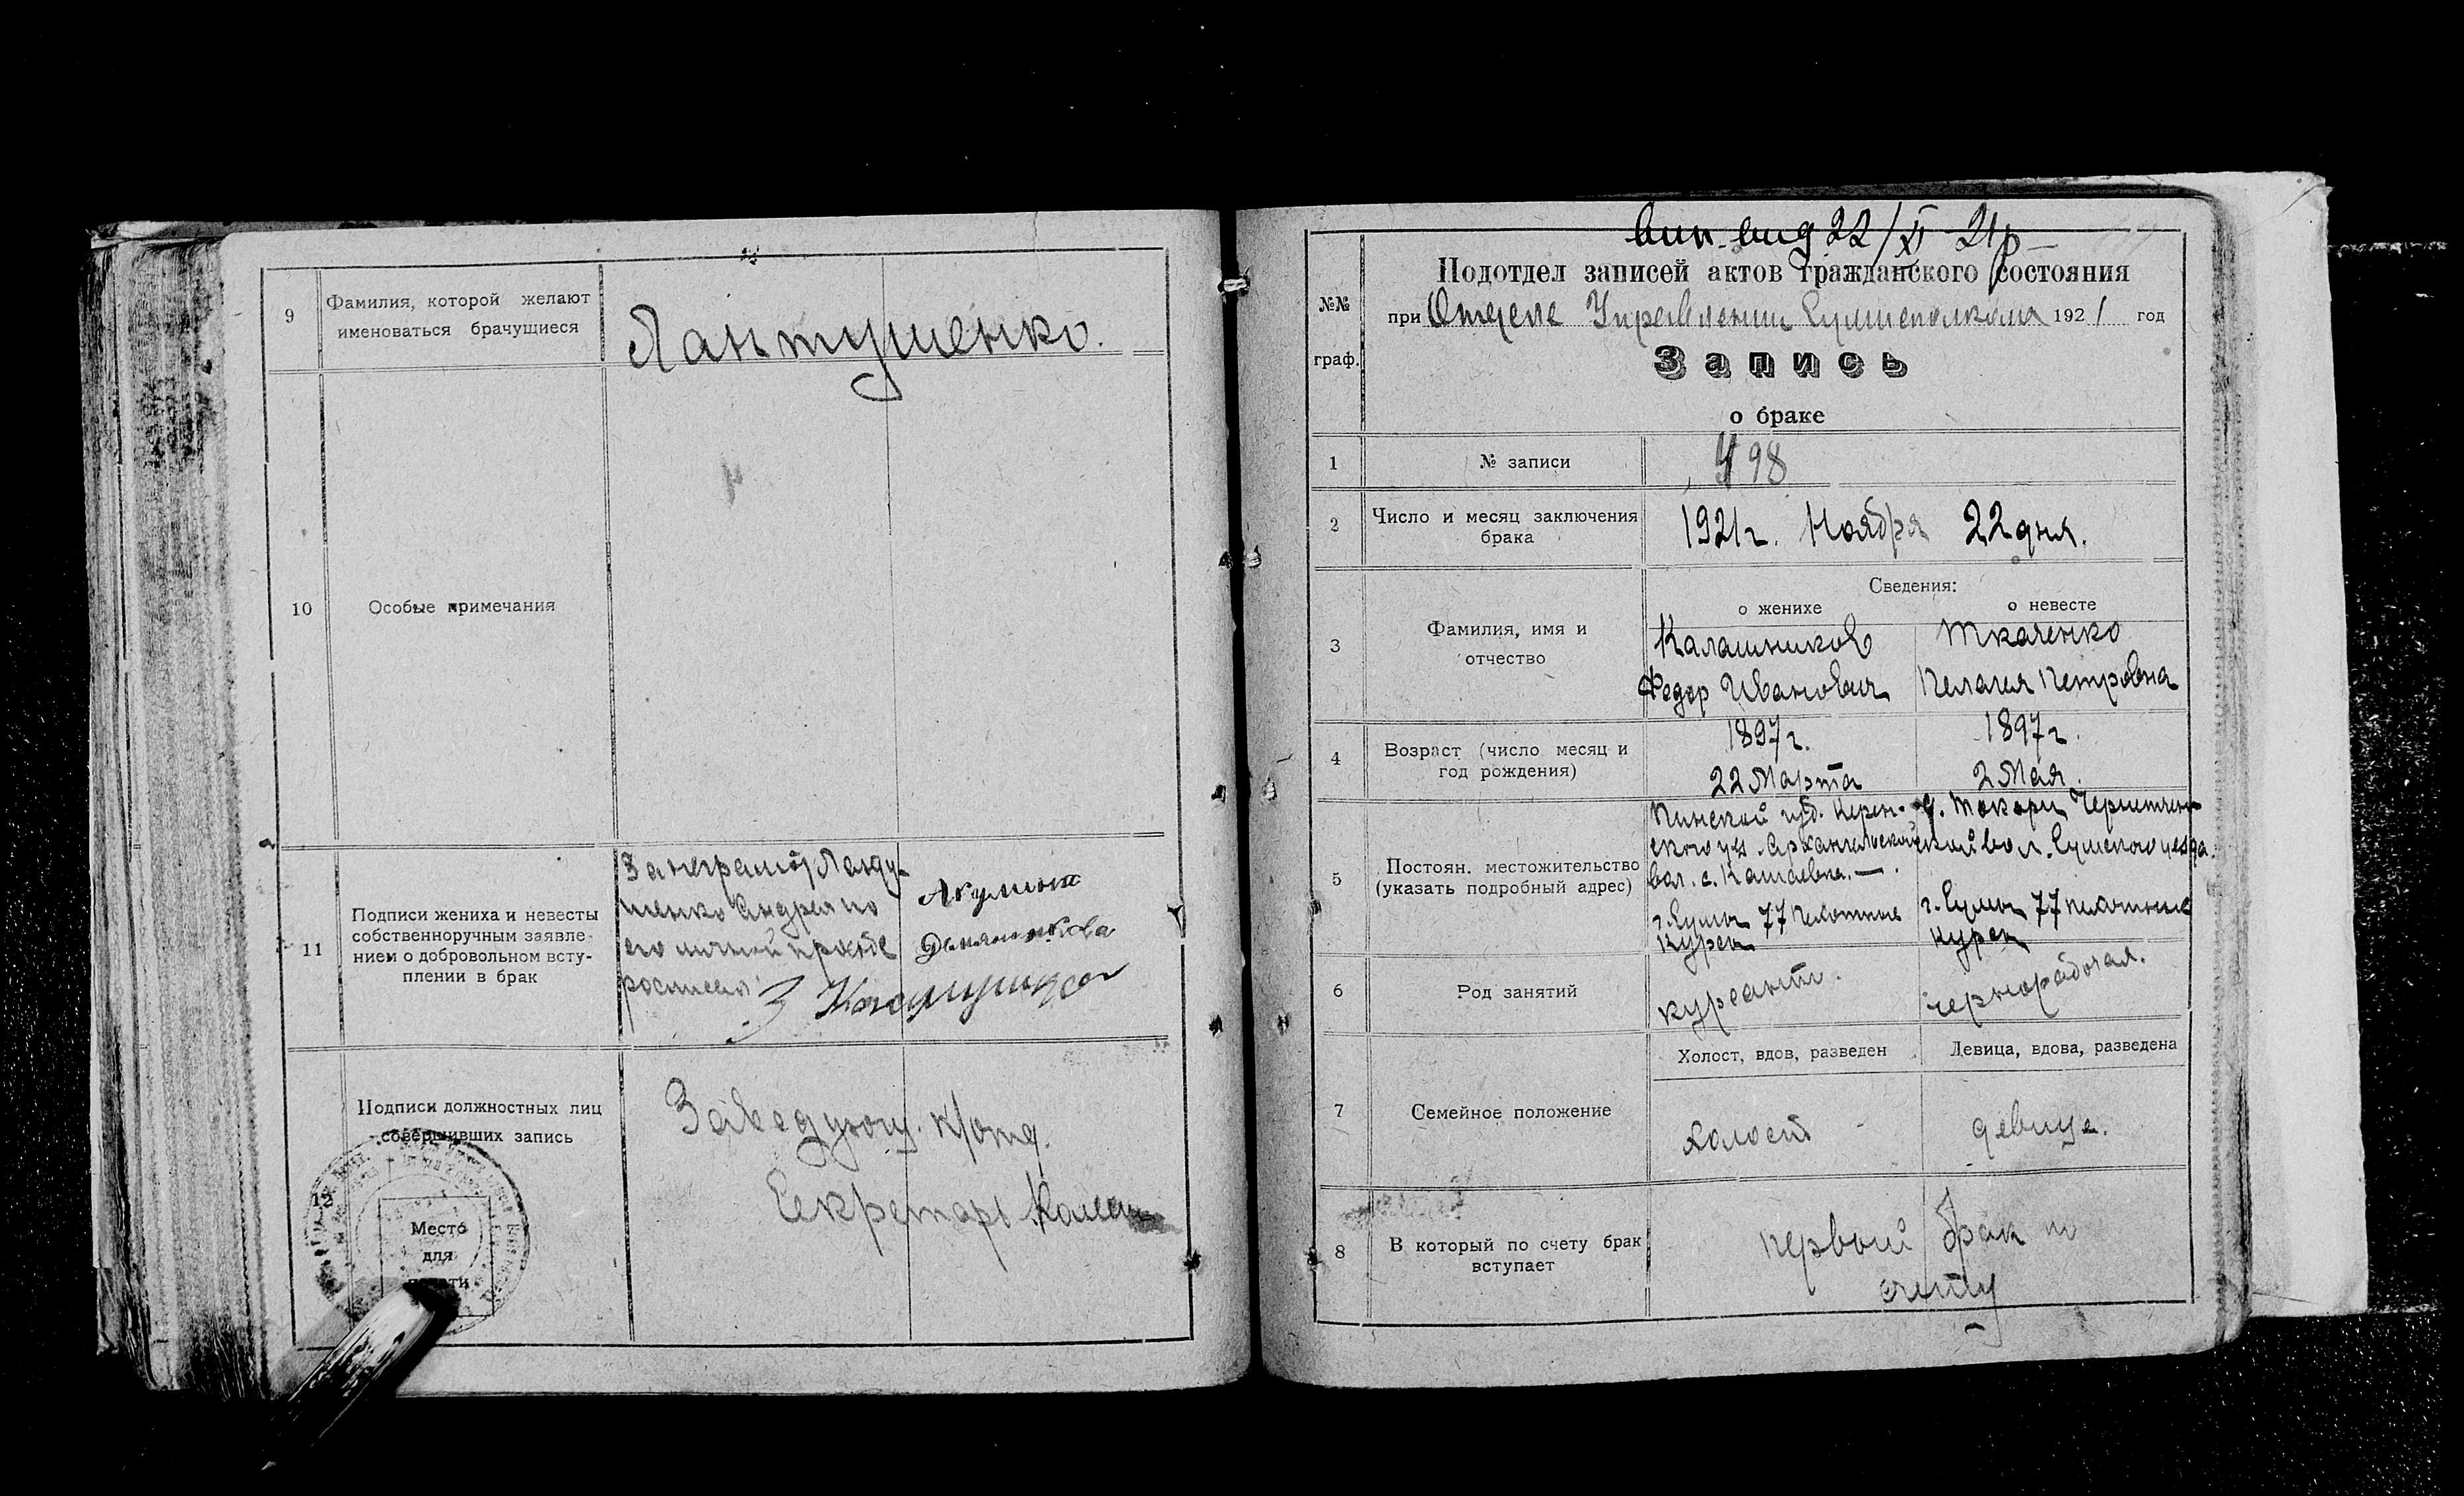 9
Фамилия, которой желают
именоваться брачущиеся
Лантушенко.
10
Особые примечания
11
Подписи жениха и невесты
собственноручным заявле-
нием о добровольном всту-
плении в брак
За неграмот Ланду-
шенко Андрея по
его личной прозбе
росписался
Акулина
Демяненкова
Подписи должностных лиц
совершивших запись
12
Место
для
печати
Заведующ. п/отд.
Секретарь
вып. вид 22/XI 21р
№№
граф.
Подотдел записей актов гражданского состояния
при Отделе Управления Сумисполкома 1921 год
Запись
о браке
1
№ записи
498
2
Число и месяц заключения
брака
1921г. Ноября 22 дня.
Сведения:
о женихе
о невесте
3
Фамилия, имя и
отчество
Калашников
Федор Иванович
Ткаченко
Пелагея Петровна
4
Возраст (число месяц и
год рождения)
1897г.
22 Марта
1897г.
2 Мая.
5
Постоян. местожительство
(указать подробный адрес)
губ. Керен-
ского уез. Архангельской
вол. с.
г. Сумы 77 Пехотные
курсы
с. Токари Чернетчин-
ской вол. Сумского уезда.
г. Сумы 77 пехотные
курсы
6
Род занятий
курсант.
чернорабочая.
7
Семейное положение
Холост, вдов, разведен
Девица, вдова, разведена
холост
девица.
8
В который по счету брак
вступает
первый брак по
счету